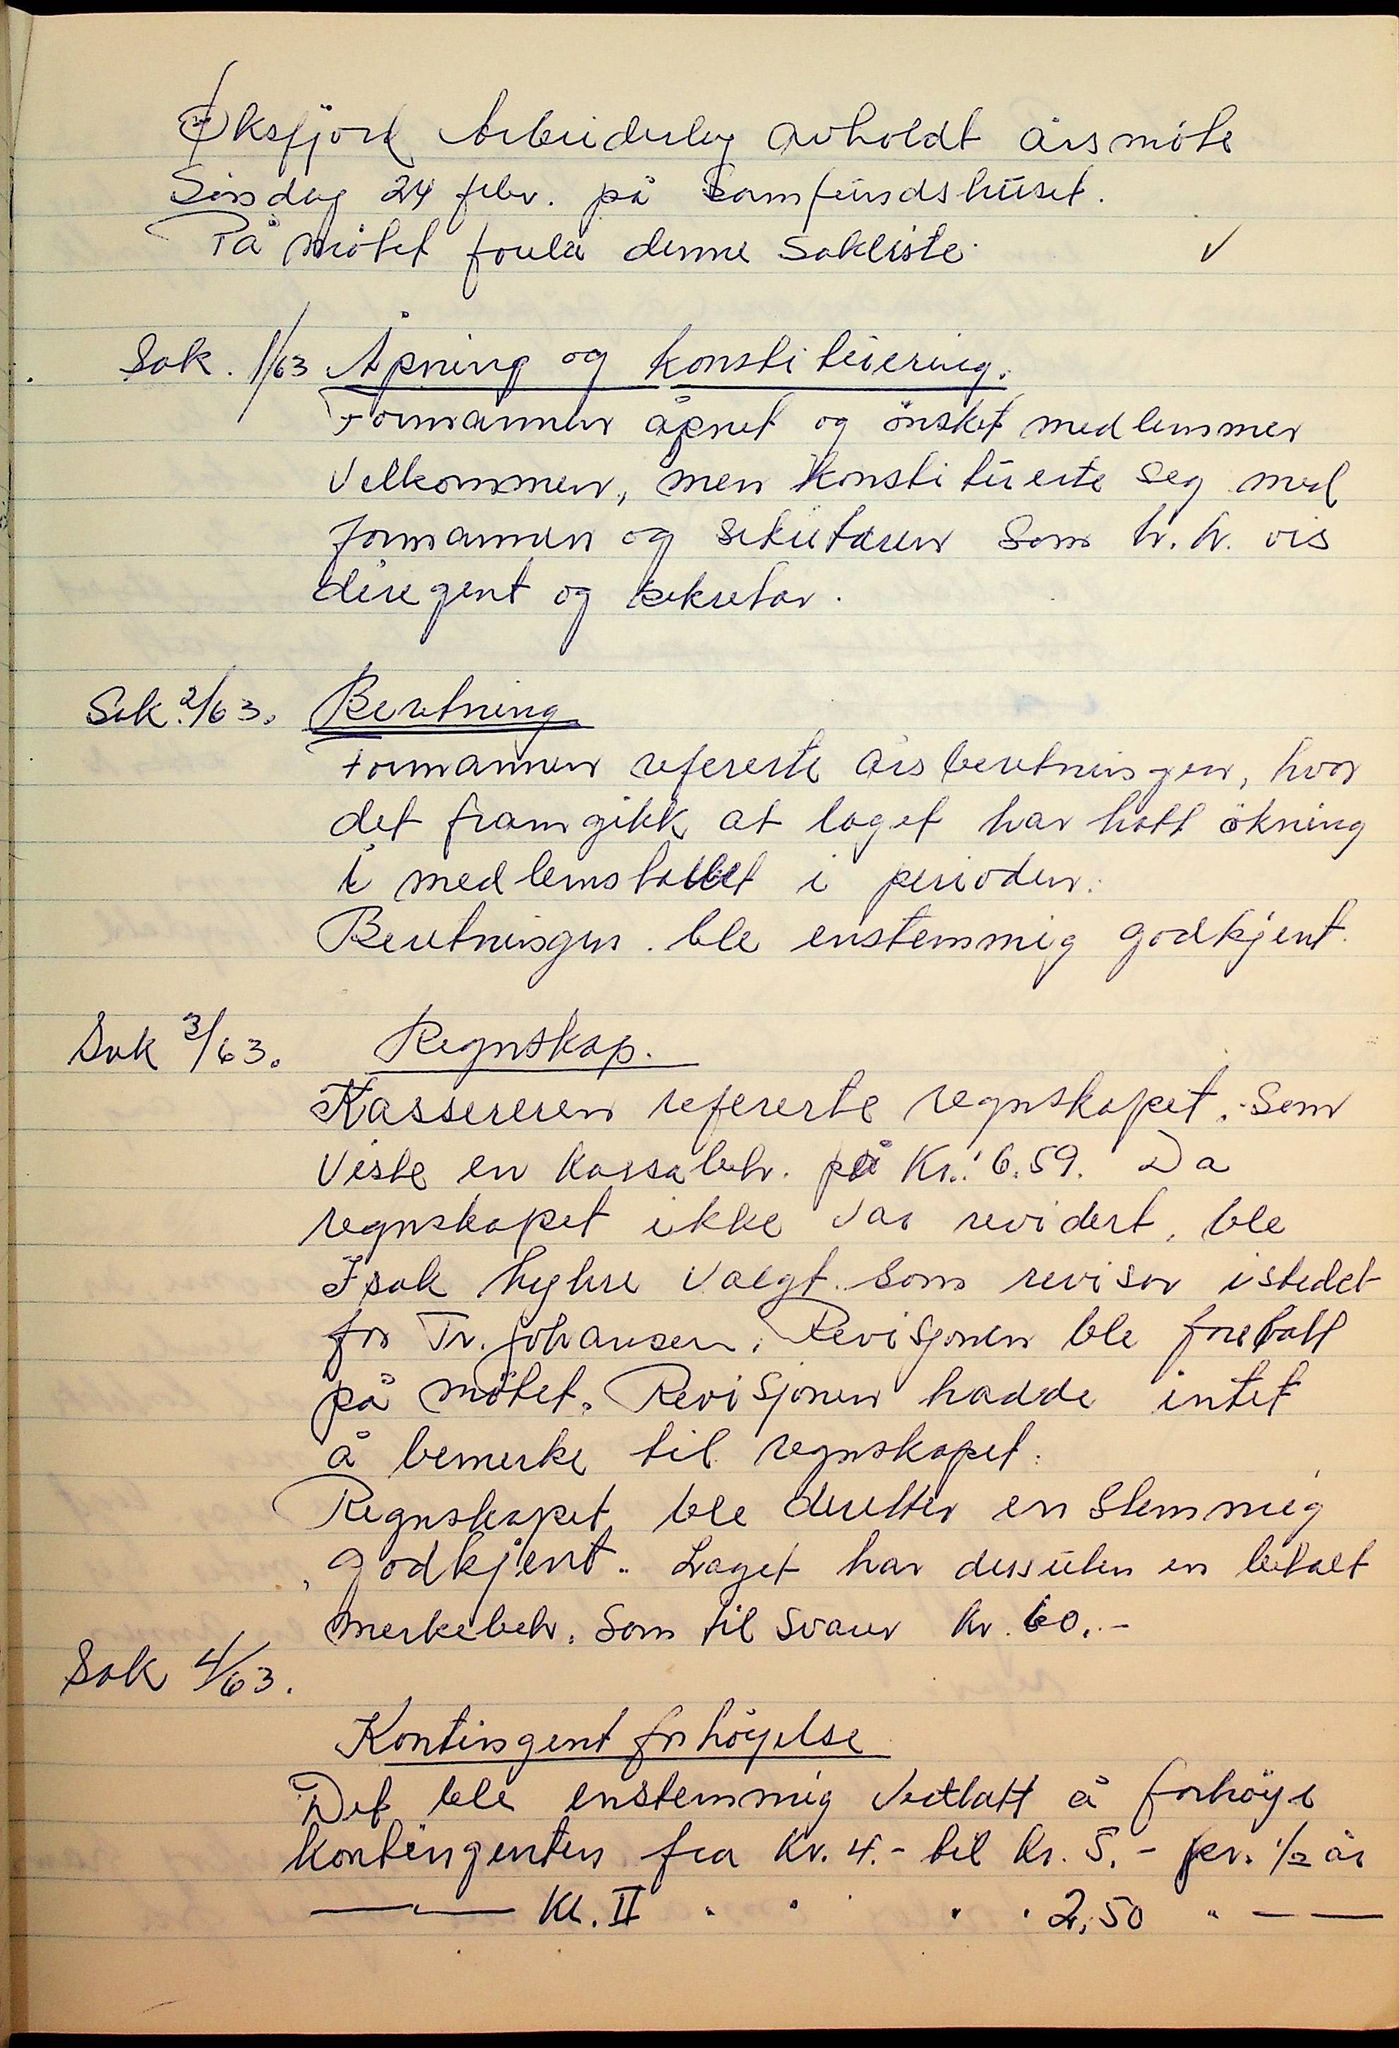 Øksfjord Arbeiderlag avholdt årsmöte
Söndag 24 febr. på Samfundshuset.
På mötet forelå denne Sakliste.
Sak. 1/63 Åpning og konstituering.
Formannen åpnet og önsket medlemmer
Velkommen, men konstituerte seg med
formannen og sekretæren som h.h. vis
diregent og sekretær.
Sak. 2/63. Beretning
Formannen refererte årsberetningen, hvor
det framgikk at laget har hatt ökning
i medlemstallet i perioden.
Beretningen ble enstemmig godkjent.
Sak 3/63. Regnskap.
Kassereren refererte regnskapet. Som
Viste en kassabeh. på Kr.: 6.59. Da
regnskapet ikke var revidert, ble
Isak valgt som revisor istedet
for Tr. Johansen. Revisjonen ble foretatt
på mötet. Revisjonen hadde intet
å bemerke til regnskapet.
Regnskapet ble deretter enstemmig
godkjent. Laget har dessuten en betalt
merkebeh. Som til svarer kr. 60.-
Sak 4/63.
Kontingent forhöyelse
Det ble enstemmig Vedtatt å forhöye
kontingenten fra Kr. 4.- til kr. 5.- pr. 1/2 år
— " — Kl. II " " " " 2,50 " — —